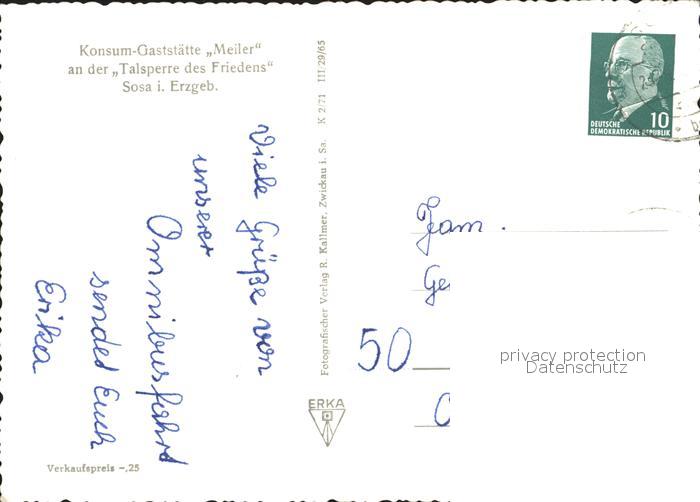 Konsum-Gaststätte „Meiler"
an der „Talsperre des Friedens"
Sosa i. Erzgeb.
Viele Grüße von
unserer
Omnibusfahrt
sendet Euch
Erika
Verkaufspreis -,25
Fotografischer Verlag R. Kallmer, Zwickau i. Sa. K 2/71 III/29/65
ERKA
DEUTSCHE
DEMOKRATISCHE REPUBLIK
10
Fam.
Ge
50
privacy protection
Datenschutz